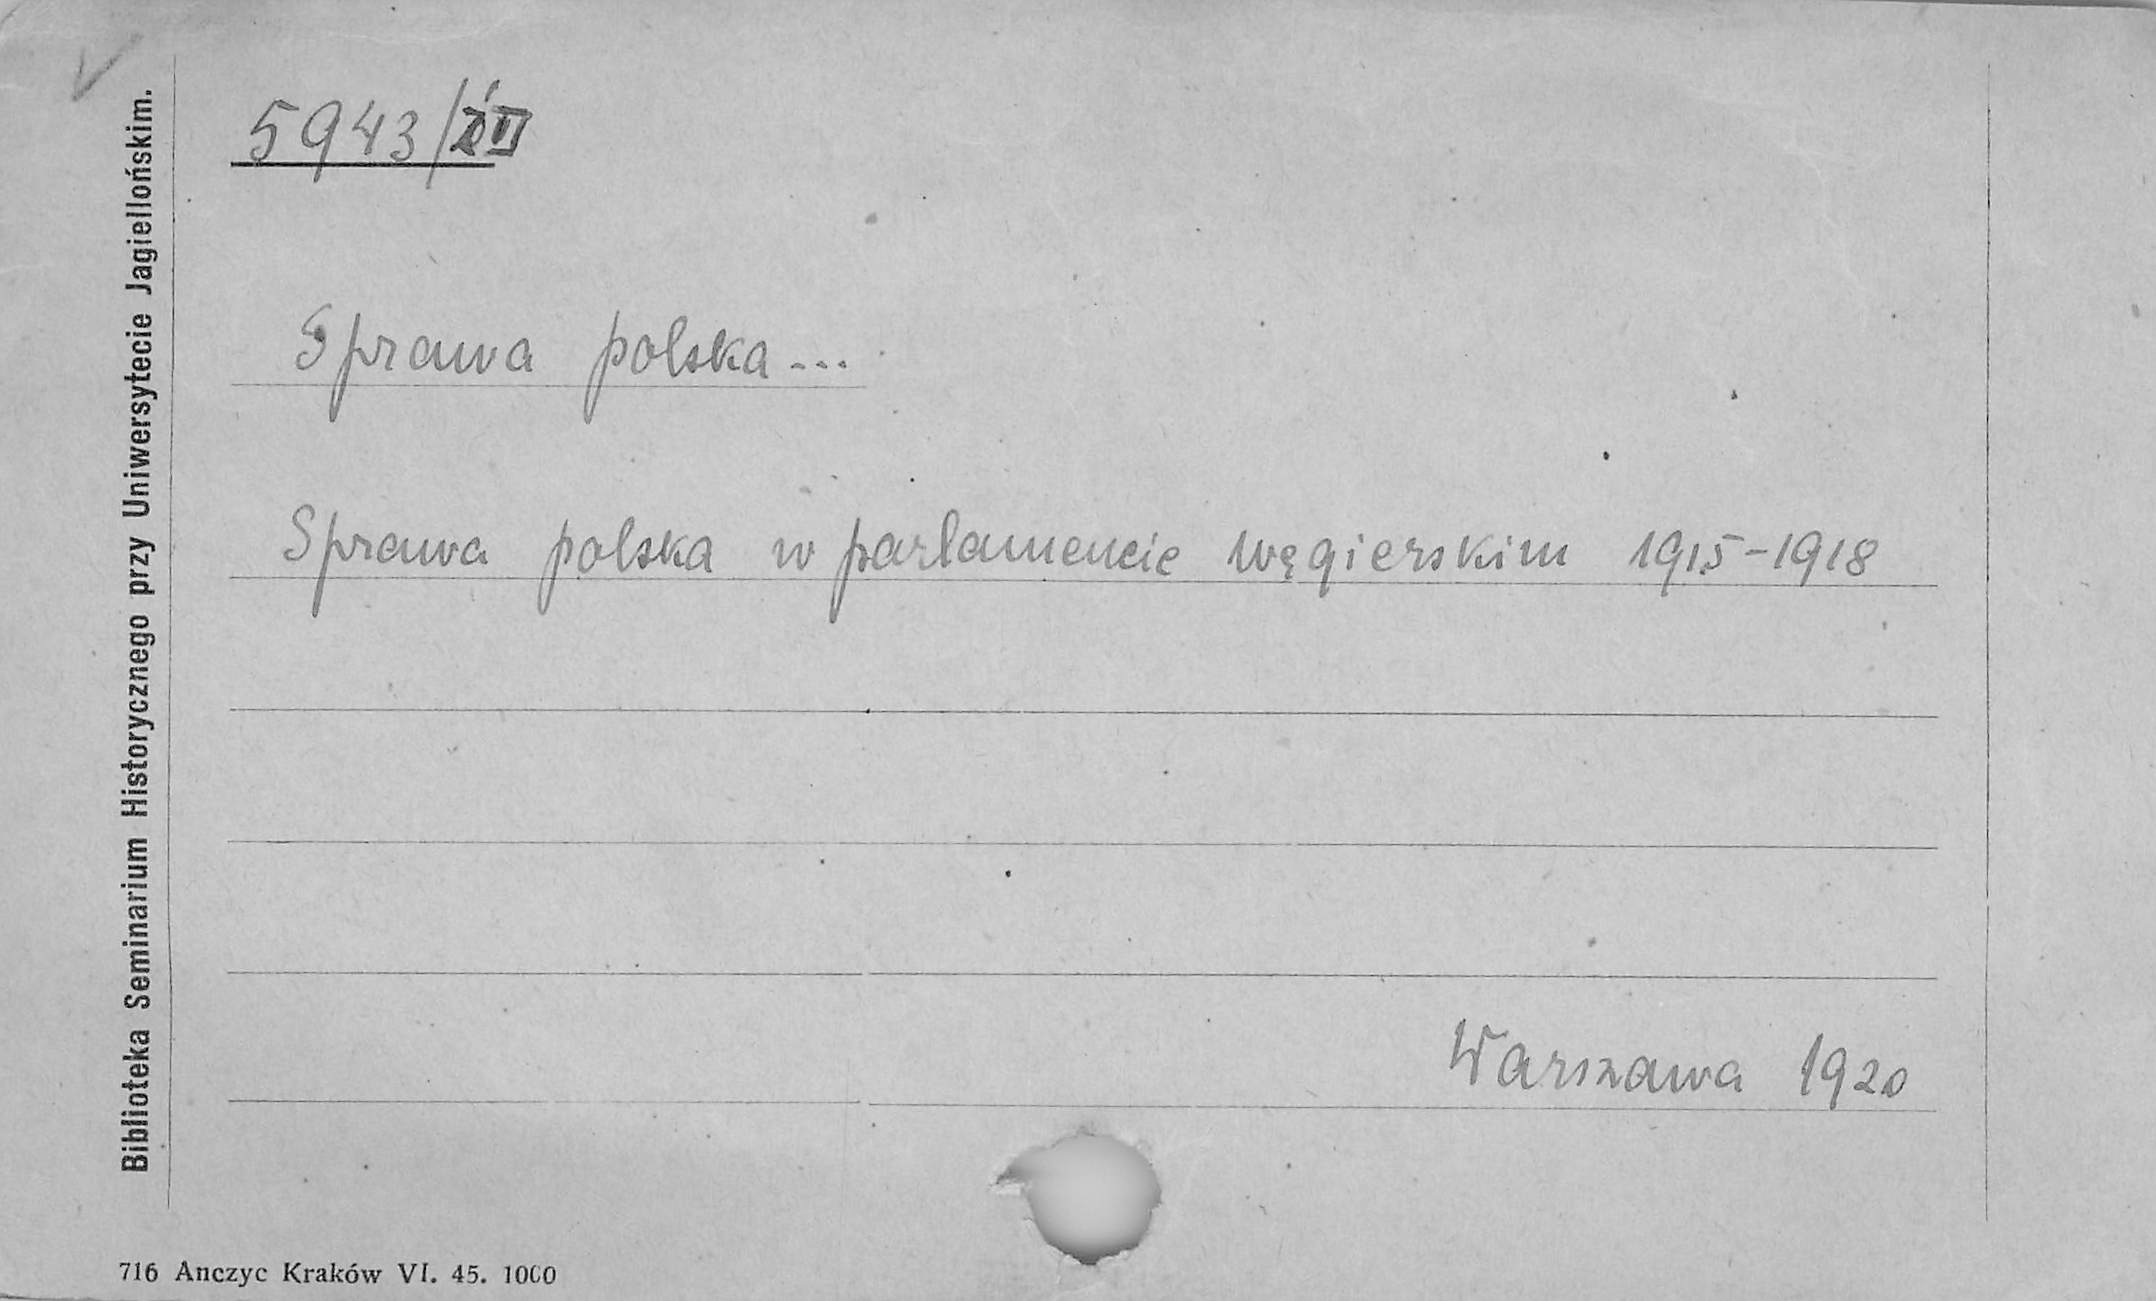 5943/II
Sprawa polska...
Sprawa polska w parlamencie węgierskim 1915-1918
Warszawa 1920
Biblioteka Seminarium Historycznego przy Uniwersytecie Jagiellońskim.
716 Anczyc Kraków VI. 45. 1000